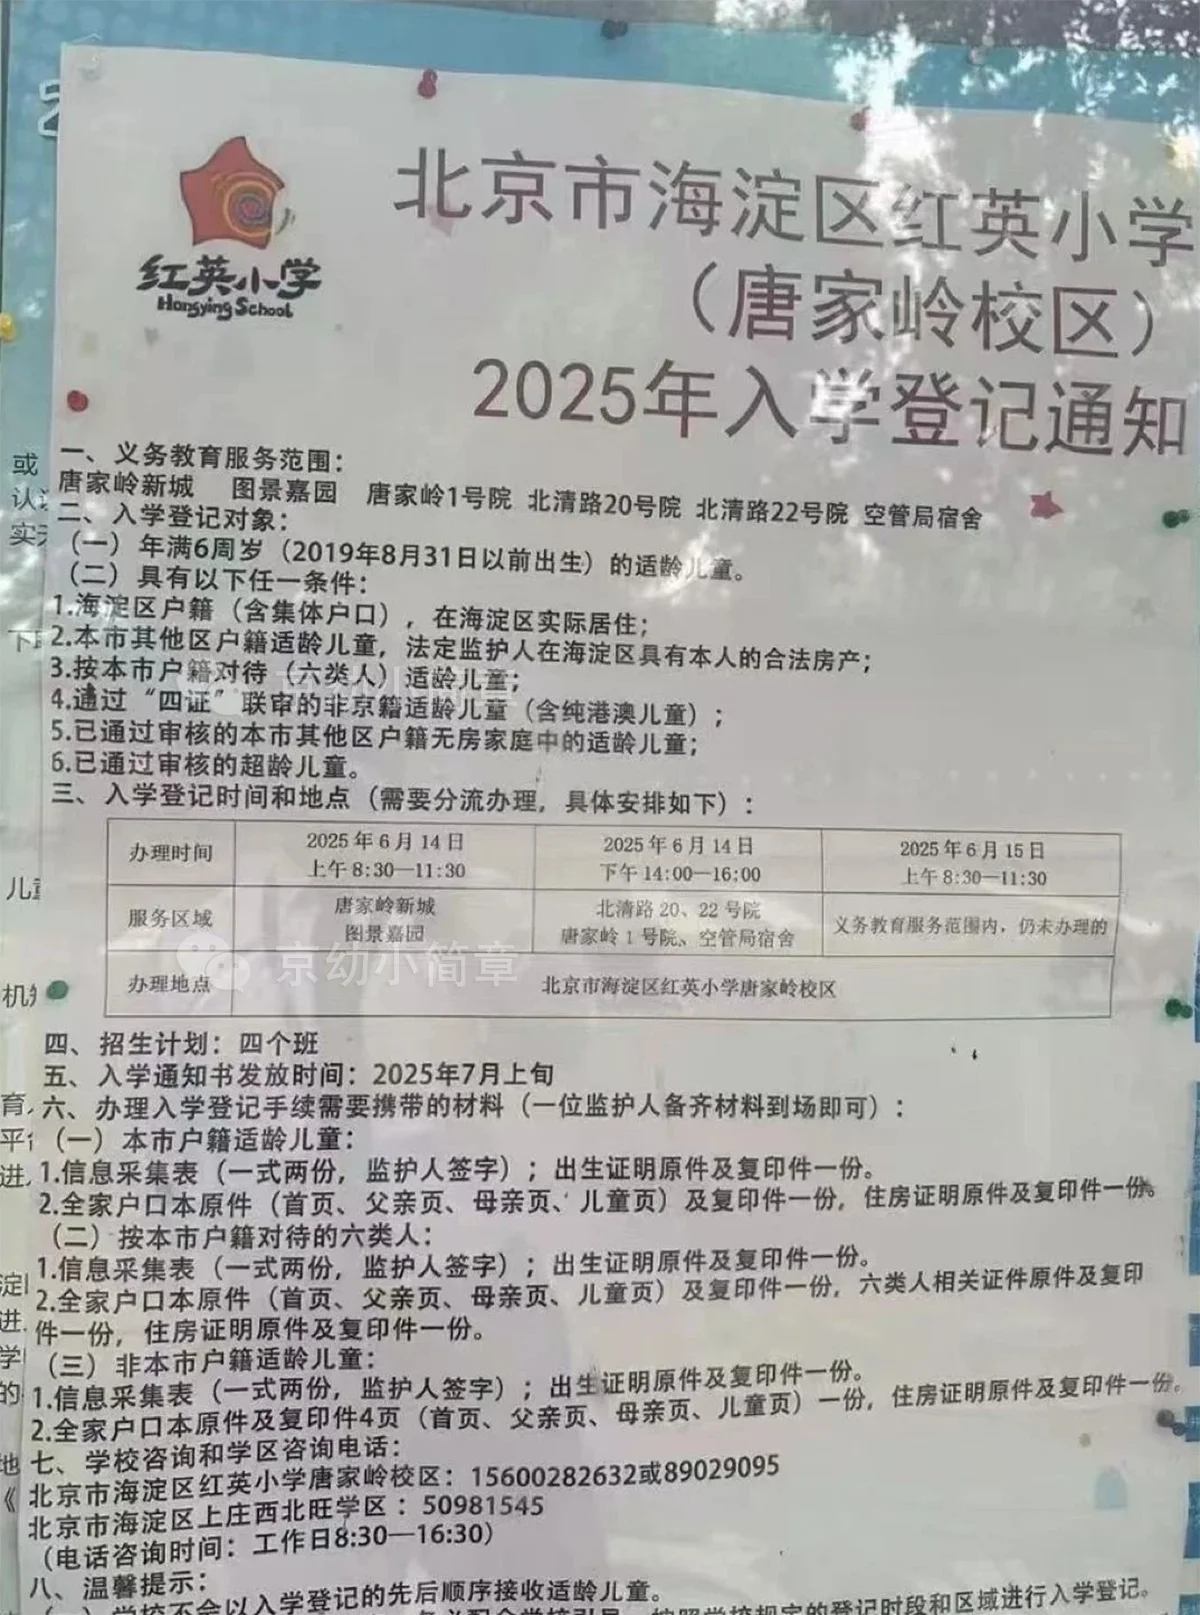 红英小学
Hongying School
北京市海淀区红英小学
（唐家岭校区）
2025年入学登记通知
一、义务教育服务范围：
唐家岭新城 图景嘉园 唐家岭1号院 北清路20号院 北清路22号院 空管局宿舍
二、入学登记对象：
（一）年满6周岁（2019年8月31日以前出生）的适龄儿童。
（二）具有以下任一条件：
1.海淀区户籍（含集体户口），在海淀区实际居住；
2.本市其他区户籍适龄儿童，法定监护人在海淀区具有本人的合法房产；
3.按本市户籍对待（六类人）适龄儿童；
4.通过“四证”联审的非京籍适龄儿童（含纯港澳儿童）；
5.已通过审核的本市其他区户籍无房家庭中的适龄儿童；
6.已通过审核的超龄儿童。
三、入学登记时间和地点（需要分流办理，具体安排如下）：
办理时间 2025年6月14日 上午8:30—11:30 2025年6月14日 下午14:00—16:00 2025年6月15日 上午8:30—11:30
服务区域 唐家岭新城 图景嘉园 北清路20、22号院 唐家岭1号院、空管局宿舍 义务教育服务范围内，仍未办理的
办理地点 北京市海淀区红英小学唐家岭校区
京幼小简章
四、招生计划：四个班
五、入学通知书发放时间：2025年7月上旬
六、办理入学登记手续需要携带的材料（一位监护人备齐材料到场即可）：
（一）本市户籍适龄儿童：
1.信息采集表（一式两份，监护人签字）；出生证明原件及复印件一份。
2.全家户口本原件（首页、父亲页、母亲页、儿童页）及复印件一份，住房证明原件及复印件一份。
（二）按本市户籍对待的六类人：
1.信息采集表（一式两份，监护人签字）；出生证明原件及复印件一份。
2.全家户口本原件（首页、父亲页、母亲页、儿童页）及复印件一份，六类人相关证件原件及复印
件一份，住房证明原件及复印件一份。
（三）非本市户籍适龄儿童：
1.信息采集表（一式两份，监护人签字）；出生证明原件及复印件一份。
2.全家户口本原件及复印件4页（首页、父亲页、母亲页、儿童页）一份，住房证明原件及复印件一份。
七、学校咨询和学区咨询电话：
北京市海淀区红英小学唐家岭校区：15600282632或89029095
北京市海淀区上庄西北旺学区：50981545
（电话咨询时间：工作日8:30—16:30）
八、温馨提示：
学校不会以入学登记的先后顺序接收适龄儿童。
按照学校规定的登记时段和区域进行入学登记。